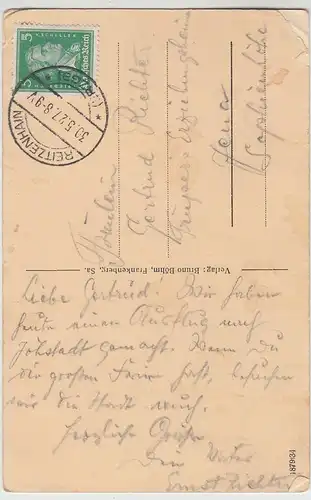 F.v.SCHILLER
5
5
Deutsches Reich
REITZENHAIN
30.5.27.8-9V.
Fräulein
Gertrud Richter
Jena
Sophienhöhe
Verlag: Bruno Böhm, Frankenberg, Sa.
Liebe Gertrud! Wir haben
heute einen Ausflug nach
Jöhstadt gemacht. Wenn Du
die großen Ferien hast, besuchen
wir die Stadt auch.
Herzliche Grüße
Dein Vater
Ernst Richter
187934